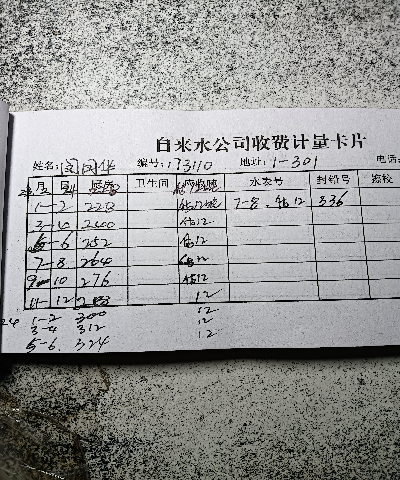 自来水公司收费计量卡片
姓名: 闫国华 编号: 73110 地址: 1-301 电话
卫生间 水表号 封铅号
1-2 228 估12 7-8. 估12 336
3-4 240 估12
5-6 252 估12
7-8 264 估12
9-10 276 估12
11-12 288 12
1-2 300 12
3-4 312 12
5-6. 324 12